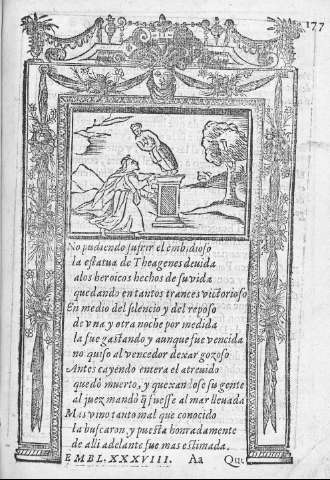 177
No pudiendo sufrir el embidioso
la estatua de Theagenes deuida
a los heroicos hechos de su vida
quedando en tantos trances victorioso
En medio del silencio y del reposo
de vna y otra noche por medida
la fue gastando y aunque fue vencida
no quiso al vencedor dexar gozoso
Antes cayendo entera el atreuido
quedò muerto, y quexandose su gente
al juez mandò q̃ fuesse al mar lleuada
Mas vino tanto mal que conocido
la buscaron, y puesta honradamente
de alli adelante fue mas estimada.
EMBL. XXXVIII. Aa Qui